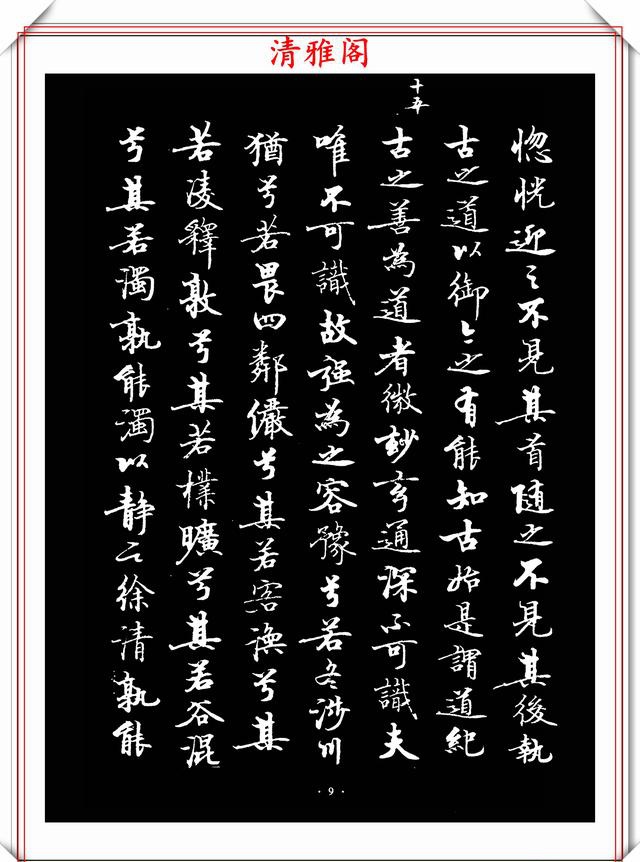 清雅阁
惚恍迎之不見其首随之不見其後執
古之道以御今之有能知古始是謂道紀
十五
古之善為道者微妙玄通深不可識夫
唯不可識故强為之容豫兮若冬涉川
猶兮若畏四鄰儼兮其若客渙兮其
若凌釋敦兮其若樸曠兮其若谷混
兮其若濁孰能濁以静之徐清孰能
·9·